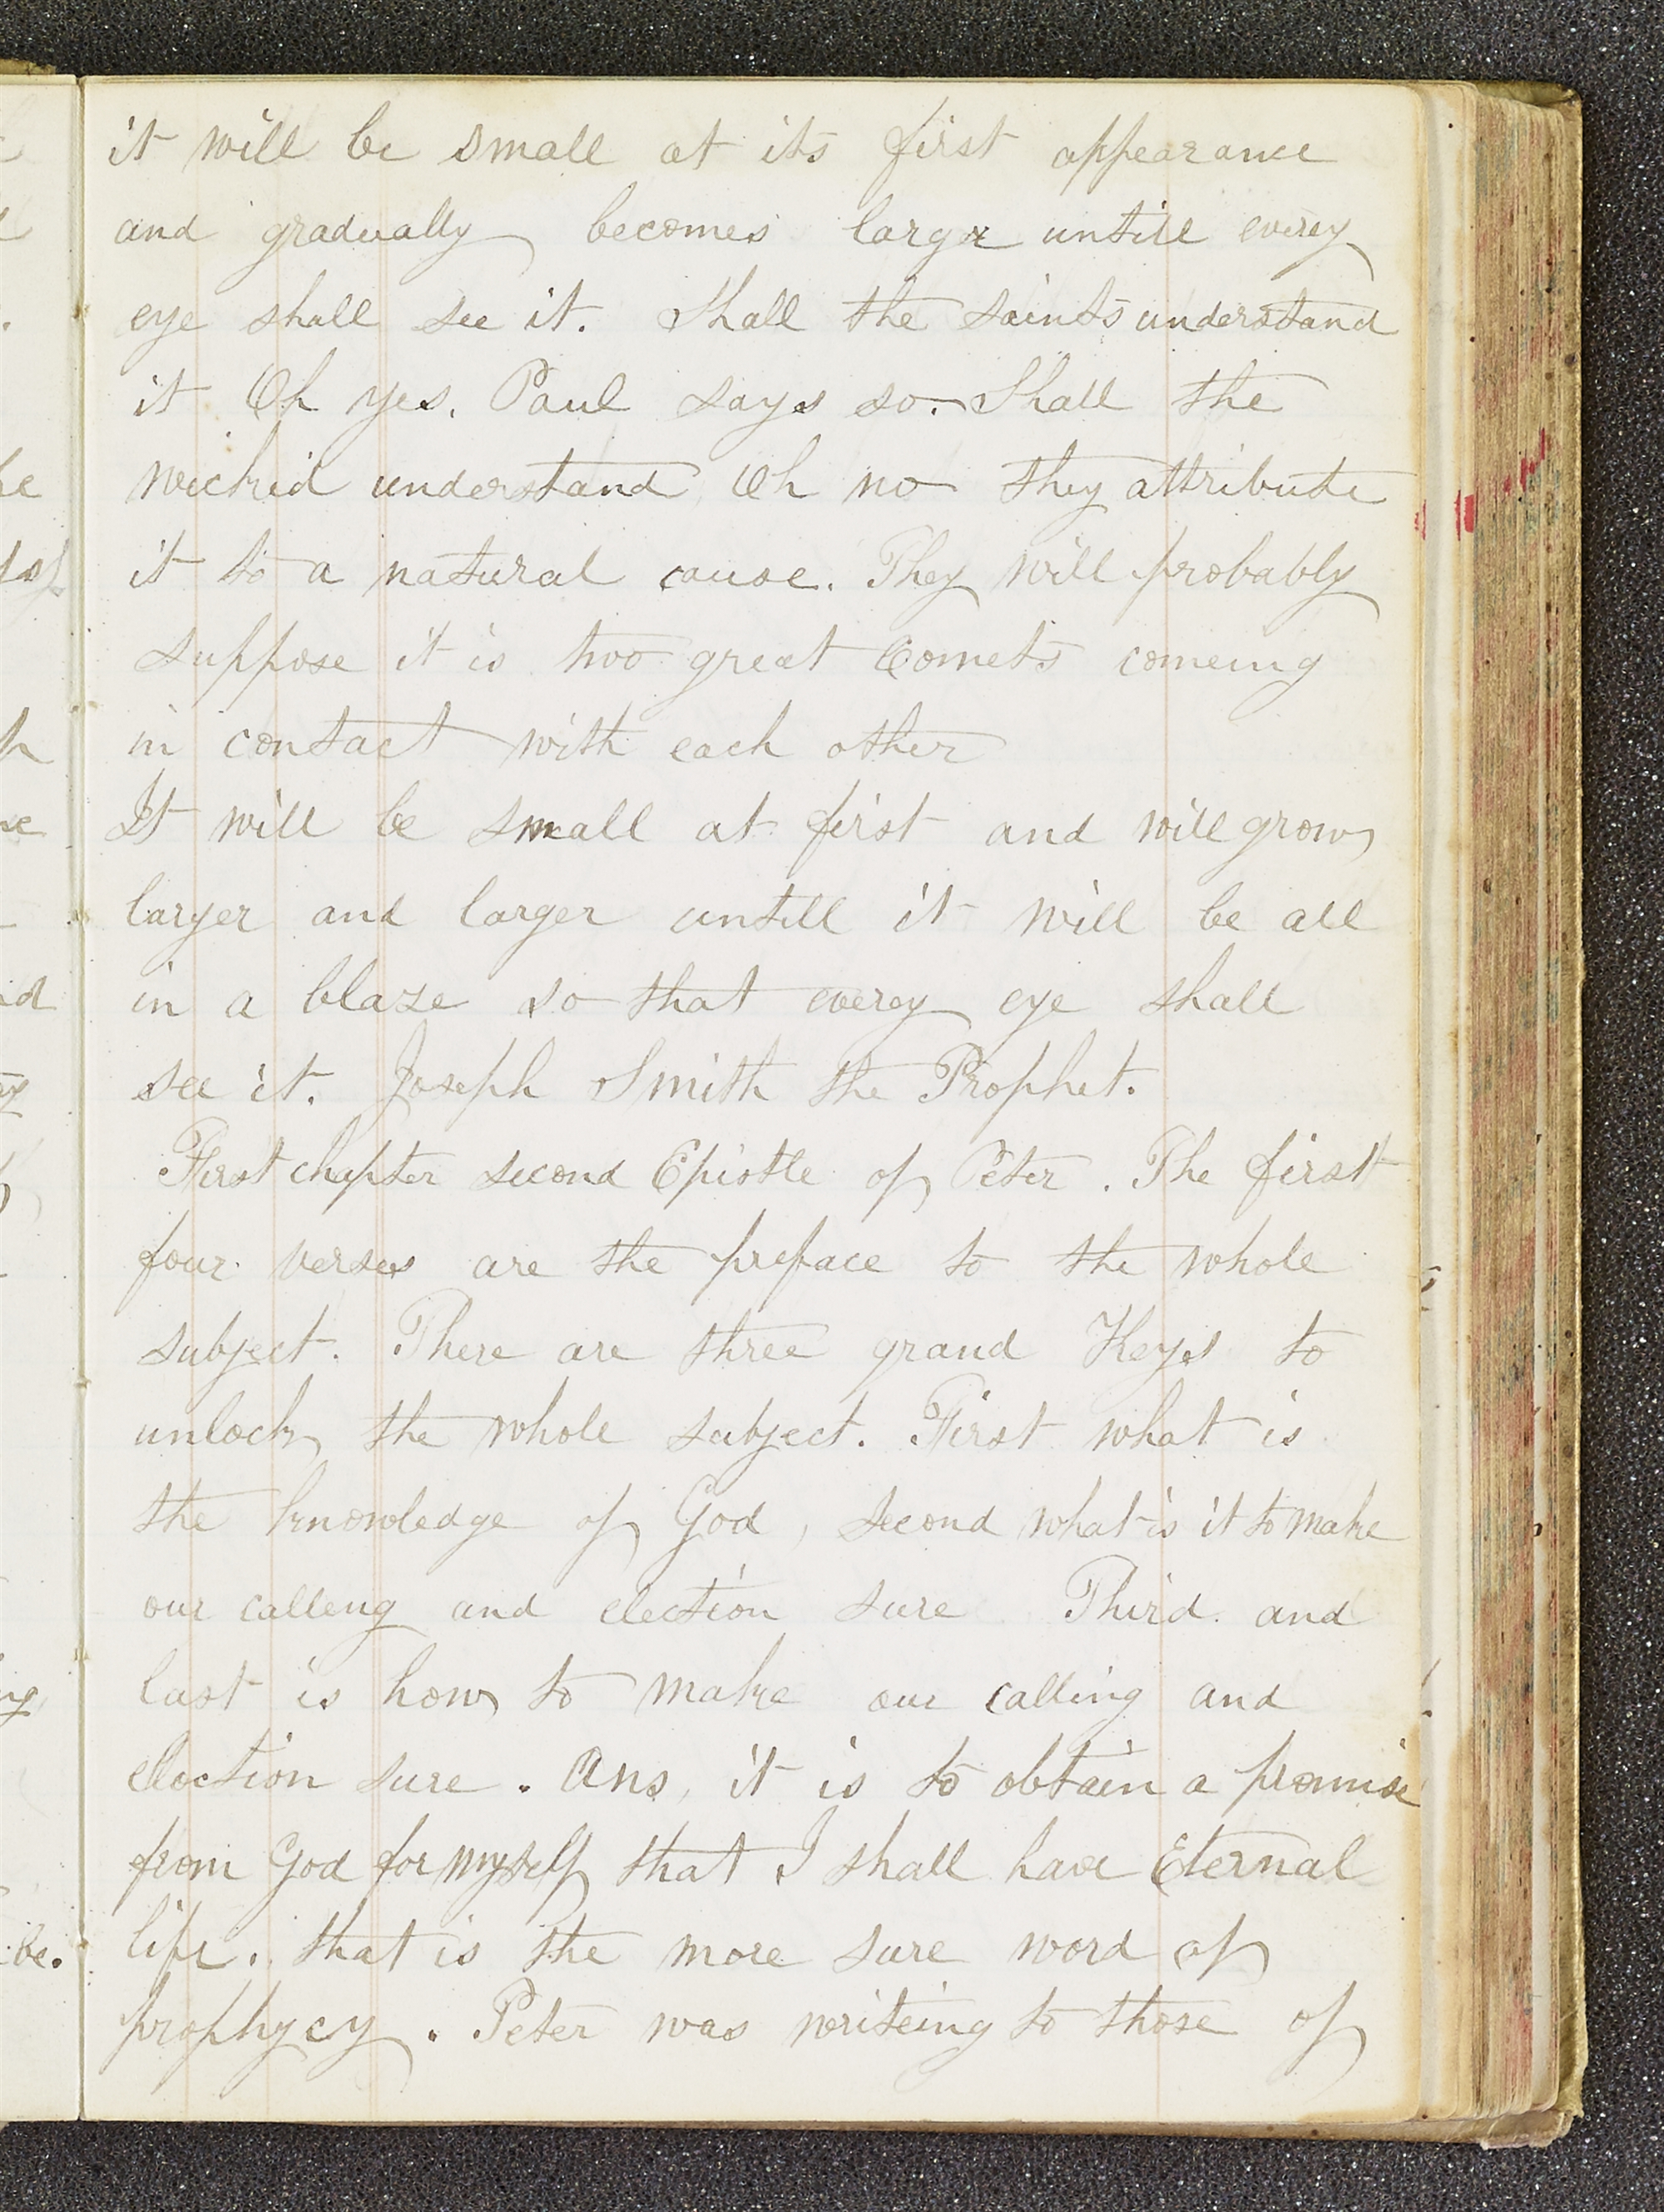 it will be small at its first appearance
and gradually becomes larger untill everey
eye shall see it. Shall the saints understand
it Oh yes. Paul says so. Shall the
wicked understand Oh no they attribute
it to a natural cause. They will probably
suppose it is two great Comets comeing
in contact with each other
It will be small at first and will grow
larger and larger untill it will be all
in a blaze so that everey eye shall
see it. Joseph Smith the Prophet.
First chapter second Epistle of Peter. The first
four verses are the preface to the whole
subject. There are three grand Keys to
unlock the whole subject. First what is
the knowledge of God, second what is it to make
our calleing and election sure Third. and
last is how to make our calling and
election sure. Ans, it is to obtain a promise
from God for myself that I shall have Eternal
life. that is the more sure word of
prophycy. Peter was writeing to those of